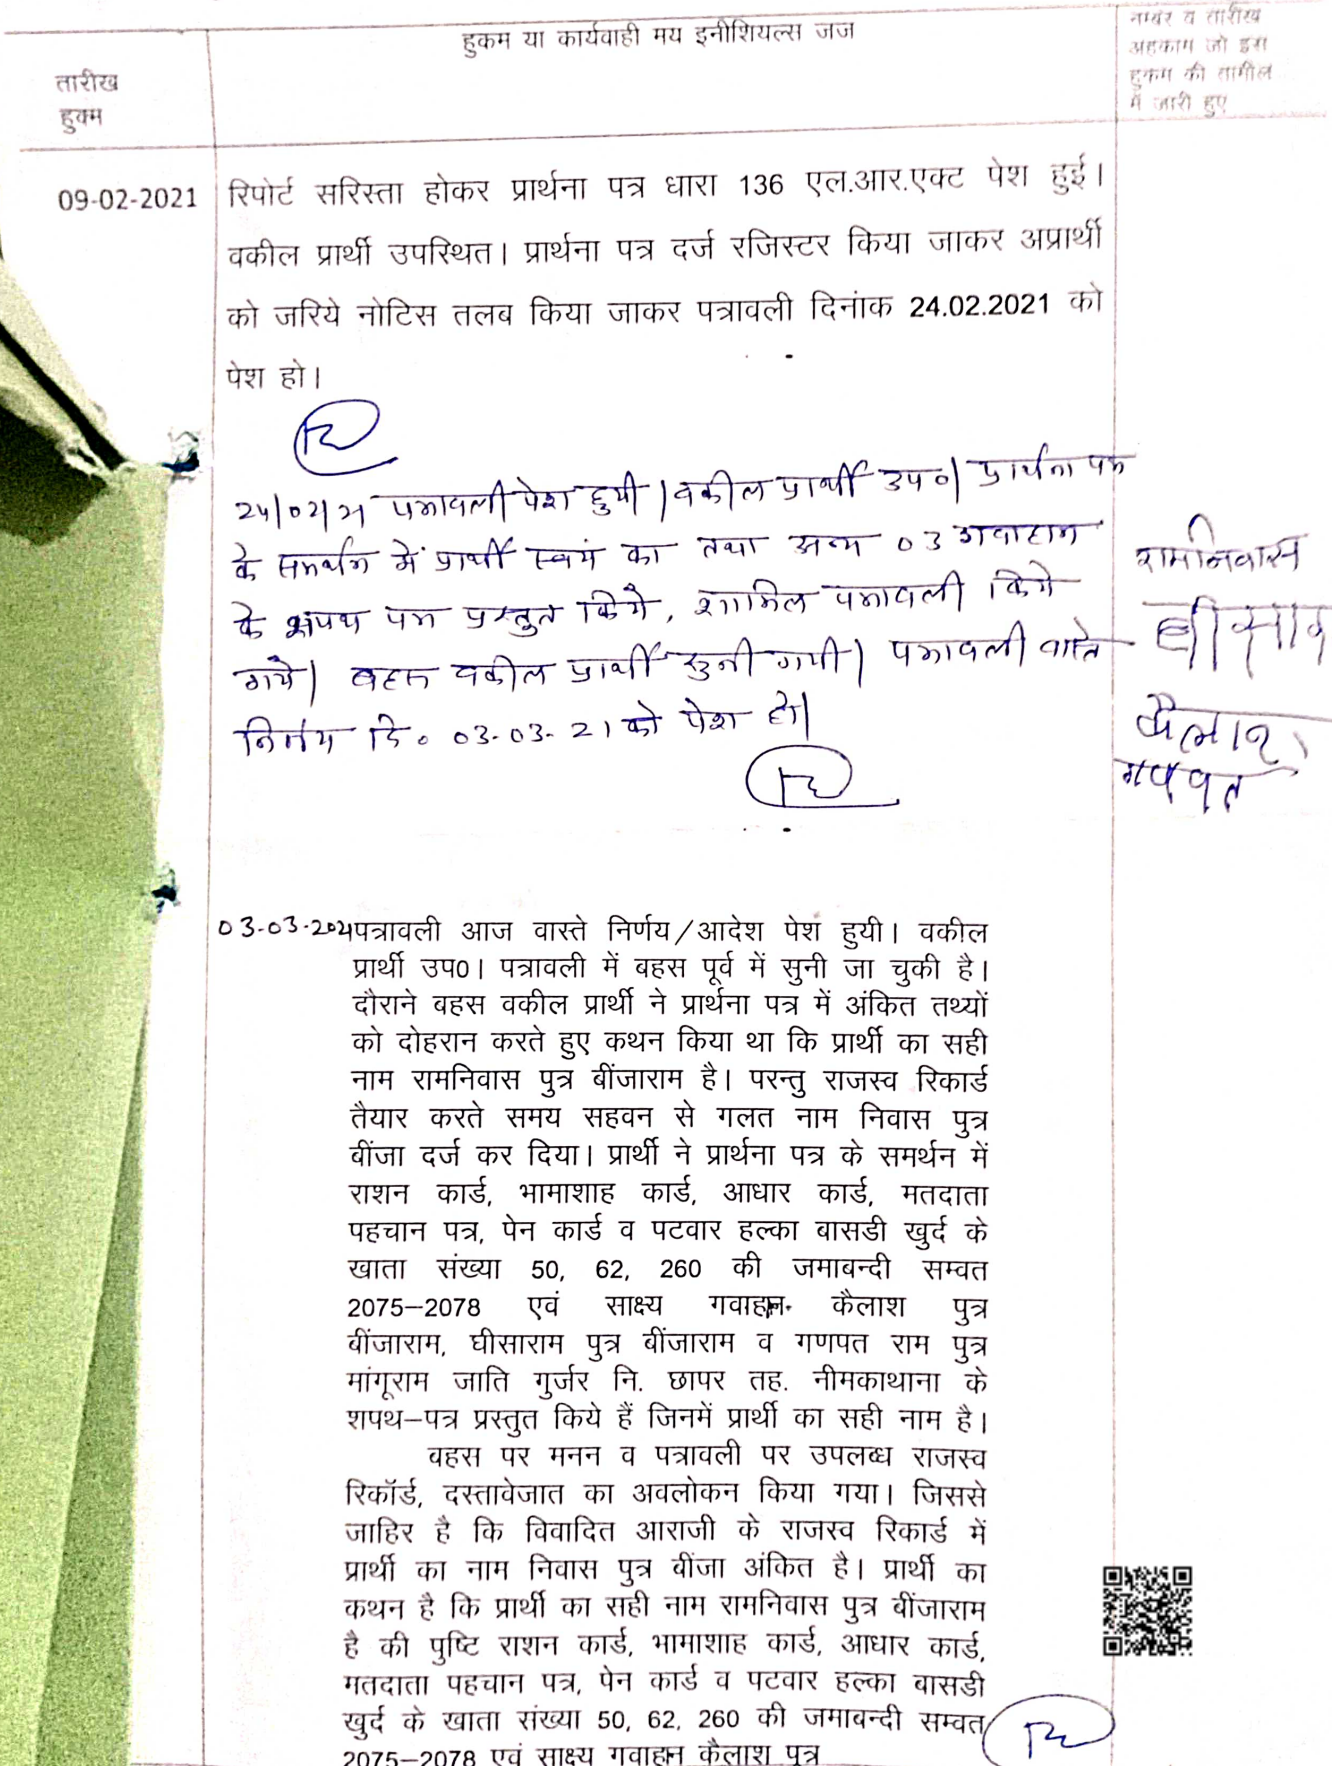 तारीख
हुक्म
हुकम या कार्यवाही मय इनीशियल्स जज
नम्बर व तारीख
अहकाम जो इस
हुकम की तामील
में जारी हुए
09-02-2021
रिपोर्ट सरिस्ता होकर प्रार्थना पत्र धारा 136 एल.आर.एक्ट पेश हुई।
वकील प्रार्थी उपस्थित। प्रार्थना पत्र दर्ज रजिस्टर किया जाकर अप्रार्थी
को जरिये नोटिस तलब किया जाकर पत्रावली दिनांक 24.02.2021 को
पेश हो।
24/02/21 पत्रावली पेश हुयी। वकील प्रार्थी उप०। प्रार्थना पत्र
के समर्थन में प्रार्थी स्वयं का तथा अन्य 03 गवाहान
के शपथ पत्र प्रस्तुत किये, शामिल पत्रावली किये
गये। बहस वकील प्रार्थी सुनी गयी। पत्रावली वास्ते
निर्णय दि० 03-03-21 को पेश हो।
रामनिवास
घीसाराम
कैलाश
गणपत
03-03-2021 पत्रावली आज वास्ते निर्णय/आदेश पेश हुयी। वकील
प्रार्थी उप0। पत्रावली में बहस पूर्व में सुनी जा चुकी है।
दौराने बहस वकील प्रार्थी ने प्रार्थना पत्र में अंकित तथ्यों
को दोहरान करते हुए कथन किया था कि प्रार्थी का सही
नाम रामनिवास पुत्र बींजाराम है। परन्तु राजस्व रिकार्ड
तैयार करते समय सहवन से गलत नाम निवास पुत्र
बींजा दर्ज कर दिया। प्रार्थी ने प्रार्थना पत्र के समर्थन में
राशन कार्ड, भामाशाह कार्ड, आधार कार्ड, मतदाता
पहचान पत्र, पेन कार्ड व पटवार हल्का बासडी खुर्द के
खाता संख्या 50, 62, 260 की जमाबन्दी सम्वत
2075–2078 एवं साक्ष्य गवाहान कैलाश पुत्र
बींजाराम, घीसाराम पुत्र बींजाराम व गणपत राम पुत्र
मांगूराम जाति गुर्जर नि. छापर तह. नीमकाथाना के
शपथ–पत्र प्रस्तुत किये हैं जिनमें प्रार्थी का सही नाम है।
वहस पर मनन व पत्रावली पर उपलब्ध राजस्व
रिकॉर्ड, दस्तावेजात का अवलोकन किया गया। जिससे
जाहिर है कि विवादित आराजी के राजस्व रिकार्ड में
प्रार्थी का नाम निवास पुत्र बींजा अंकित है। प्रार्थी का
कथन है कि प्रार्थी का सही नाम रामनिवास पुत्र बींजाराम
है की पुष्टि राशन कार्ड, भामाशाह कार्ड, आधार कार्ड,
मतदाता पहचान पत्र, पेन कार्ड व पटवार हल्का बासडी
खुर्द के खाता संख्या 50, 62, 260 की जमाबन्दी सम्वत
2075–2078 एवं साक्ष्य गवाहान कैलाश पुत्र